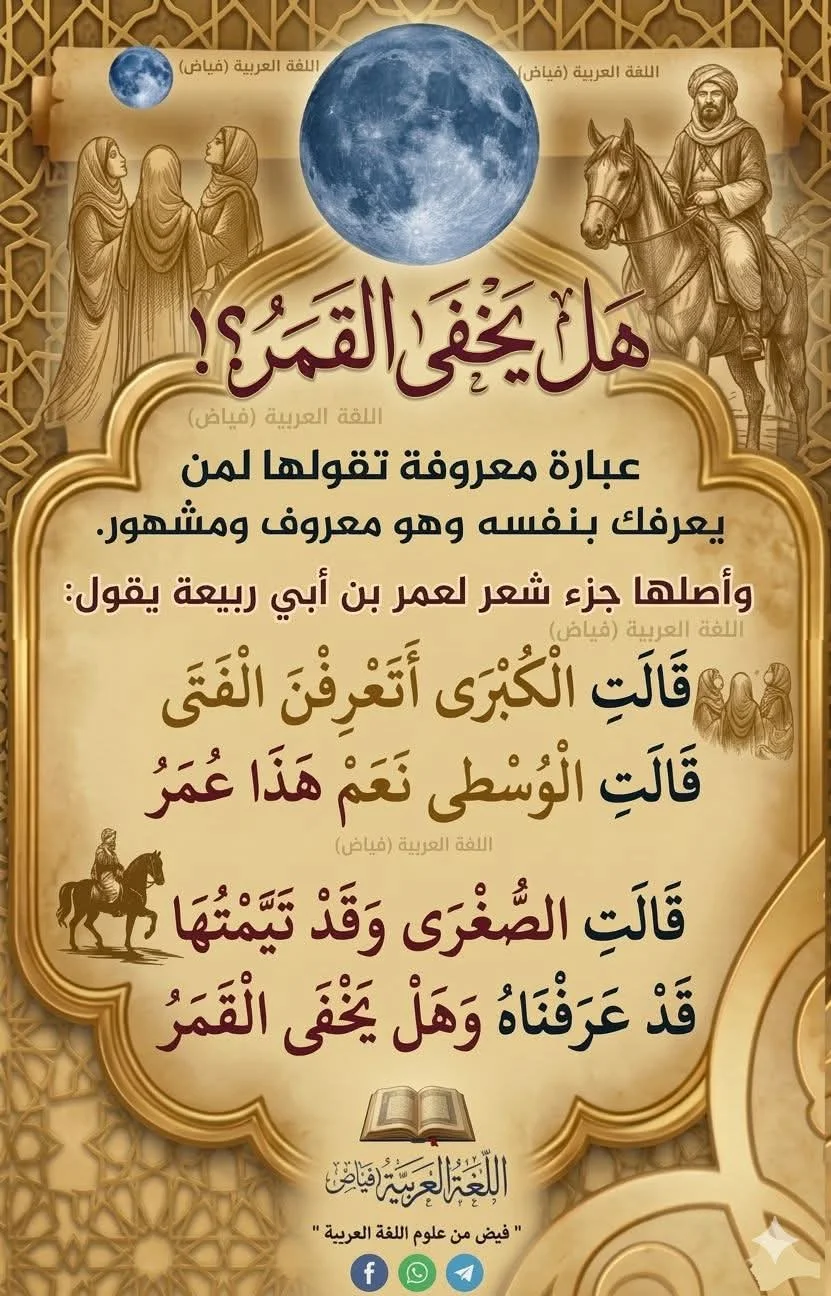 اللغة العربية (فياض)
اللغة العربية (فياض)
هَل يَخْفَى القَمَرُ؟!
اللغة العربية (فياض)
عبارة معروفة تقولها لمن
يعرفك بنفسه وهو معروف ومشهور.
وأصلها جزء شعر لعمر بن أبي ربيعة يقول:
اللغة العربية (فياض)
قَالَتِ الْكُبْرَى أَتَعْرِفْنَ الْفَتَى
قَالَتِ الْوُسْطى نَعَمْ هَذَا عُمَرُ
اللغة العربية (فياض)
قَالَتِ الصُّغْرَى وَقَدْ تَيَّمْتُهَا
قَدْ عَرَفْنَاهُ وَهَلْ يَخْفَى الْقَمَرُ
اللُّغَةُ العَرَبِيَّة (فياض)
" فيض من علوم اللغة العربية "